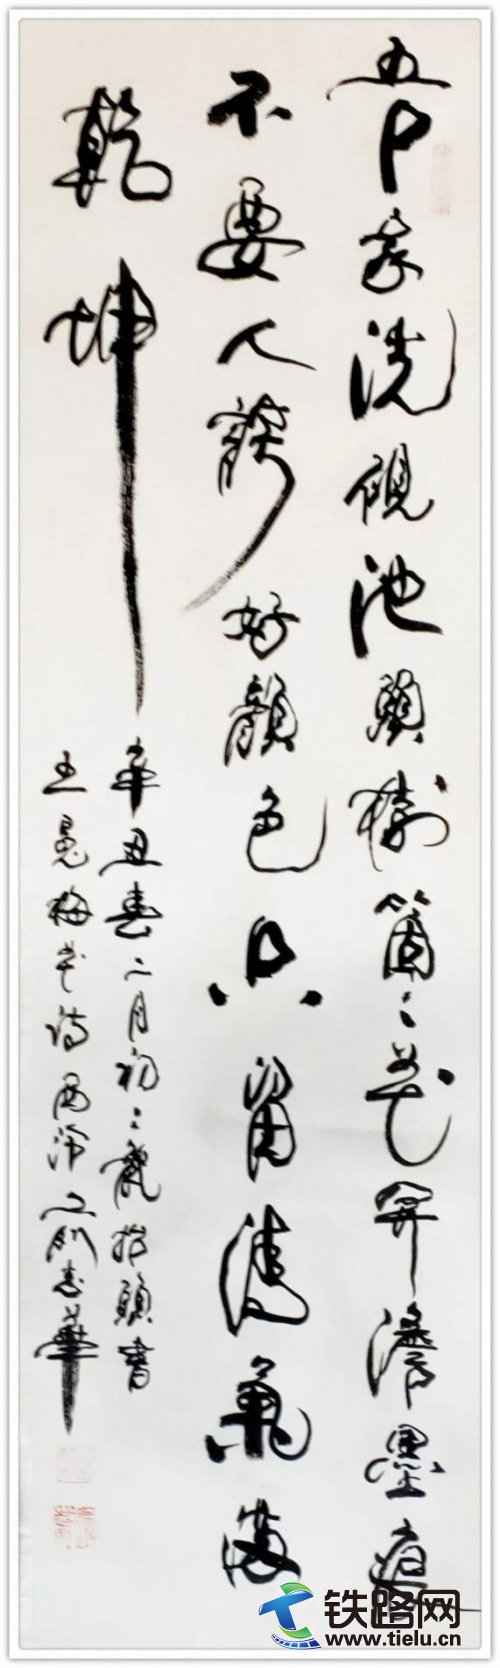 吾家洗硯池頭樹箇〻花開澹墨痕
不要人誇好顏色只留清氣滿
乾坤
辛丑春二月初二龍抬頭書
王冕梅花詩西泠志華
铁路网
www.tielu.cn